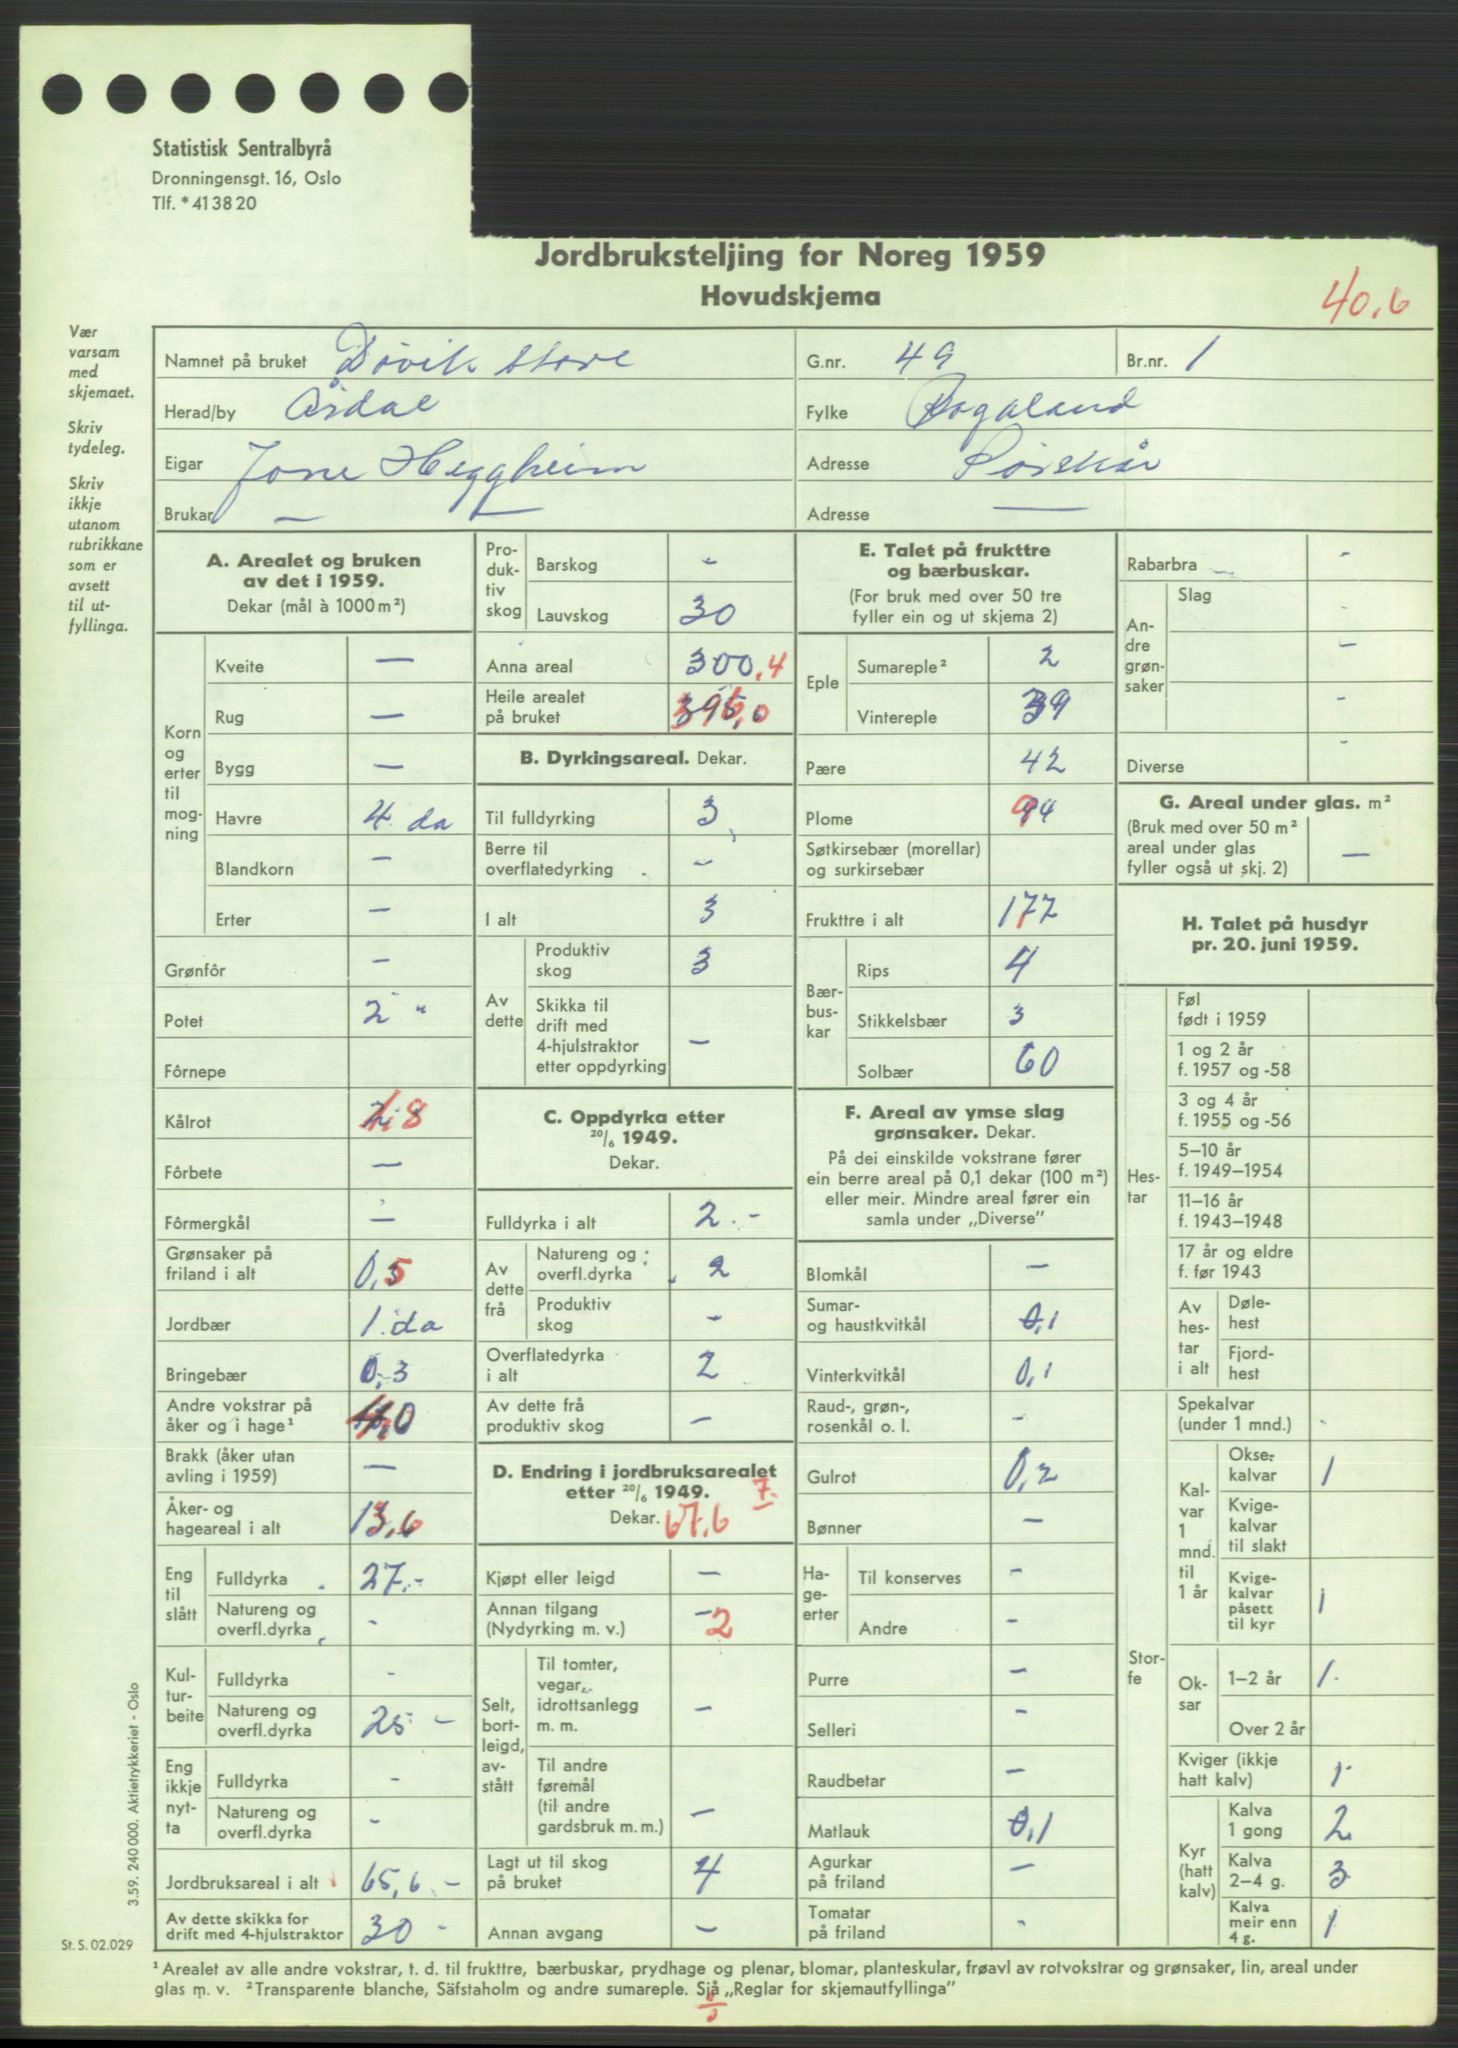 Statistisk Sentralbyrå
Dronningensgt. 16, Oslo
Tlf. * 41 38 20
Jordbruksteljing for Noreg 1959
Hovudskjema
40,6
Vær
varsam
med
skjemaet.
Skriv
tydeleg.
Skriv
ikkje
utanom
rubrikkane
som er
avsett
til ut-
fyllinga.
Namnet på bruket Døvik store G.nr. 49 Br.nr. 1
Herad/by Årdal Fylke Rogaland
Eigar Jone Heggheim Adresse
Brukar — — Adresse —
A. Arealet og bruken
av det i 1959.
Dekar (mål à 1000 m²)
Korn
og
erter
til
mog-
ning
Kveite —
Rug —
Bygg —
Havre 4 da
Blandkorn —
Erter —
Grønfôr —
Potet 2 "
Fôrnepe
Kålrot
Fôrbete —
Fôrmergkål —
Grønsaker på
friland i alt 0,5
Jordbær 1 da
Bringebær 0,3
Andre vokstrar på
åker og i hage¹
Brakk (åker utan
avling i 1959) —
Åker- og
hageareal i alt 13,6
Eng
til
slått
Fulldyrka 27.-
Natureng og
overfl.dyrka -
Kul-
tur-
beite
Fulldyrka -
Natureng og
overfl.dyrka 25 -
Eng
ikkje
nyt-
ta
Fulldyrka -
Natureng og
overfl.dyrka -
Jordbruksareal i alt 65,6.-
Av dette skikka for
drift med 4-hjulstraktor 30 -
Pro-
duk-
tiv
skog
Barskog -
Lauvskog 30
Anna areal 300,4
Heile arealet
på bruket
B. Dyrkingsareal. Dekar.
Til fulldyrking 3
Berre til
overflatedyrking -
I alt 3
Av
dette
Produktiv
skog 3
Skikka til
drift med
4-hjulstraktor
etter oppdyrking —
C. Oppdyrka etter
20/6 1949.
Dekar.
Fulldyrka i alt 2.-
Av
dette
frå
Natureng og
overfl.dyrka 2
Produktiv
skog -
Overflatedyrka
i alt 2
Av dette frå
produktiv skog —
D. Endring i jordbruksarealet
etter 20/6 1949. 7.
Dekar. 67,6
Kjøpt eller leigd —
Annan tilgang
(Nydyrking m. v.) 2
Selt,
bort-
leigd,
av-
stått
Til tomter,
vegar,
idrottsanlegg
m. m. —
Til andre
føremål
(til andre
gardsbruk m. m.) —
Lagt ut til skog
på bruket 4
Annan avgang —
E. Talet på frukttre
og bærbuskar.
(For bruk med over 50 tre
fyller ein og ut skjema 2)
Eple
Sumareple² 2
Vintereple 39
Pære 42
Plome 94
Søtkirsebær (morellar)
og surkirsebær
Frukttre i alt 177
Bær-
bus-
kar
Rips 4
Stikkelsbær 3
Solbær 60
F. Areal av ymse slag
grønsaker. Dekar.
På dei einskilde vokstrane fører
ein berre areal på 0,1 dekar (100 m²)
eller meir. Mindre areal fører ein
samla under „Diverse”
Blomkål —
Sumar-
og haustkvitkål 0,1
Vinterkvitkål 0,1
Raud-, grøn-,
rosenkål o. l. -
Gulrot 0,2
Bønner —
Ha-
ge-
erter
Til konserves -
Andre -
Purre —
Selleri -
Raudbetar —
Matlauk 0,1
Agurkar
på friland —
Tomatar
på friland -
Rabarbra -
An-
dre
grøn-
saker
Slag -
-
-
Diverse -
G. Areal under glas. m²
(Bruk med over 50 m²
areal under glas
fyller også ut skj. 2) —
H. Talet på husdyr
pr. 20. juni 1959.
Hes-
tar
Føl
født i 1959
1 og 2 år
f. 1957 og -58
3 og 4 år
f. 1955 og -56
5–10 år
f. 1949–1954
11–16 år
f. 1943–1948
17 år og eldre
f. før 1943
Av
hes-
tar
i alt
Døle-
hest
Fjord-
hest
Stor-
fe
Spekalvar
(under 1 mnd.)
Kal-
var
1
mnd.
til
1 år
Okse-
kalvar 1
Kvige-
kalvar
til slakt
Kvige-
kalvar
påsett
til kyr 1
Ok-
sar
1–2 år 1
Over 2 år
Kviger (ikkje
hatt kalv) 1
Kyr
(hatt
kalv)
Kalva
1 gong 2
Kalva
2–4 g. 3
Kalva
meir enn
4 g. 1
3.59. 240 000. Aktietrykkeriet - Oslo
St. S. 02.029
¹ Arealet av alle andre vokstrar, t. d. til frukttre, bærbuskar, prydhage og plenar, blomar, planteskular, frøavl av rotvokstrar og grønsaker, lin, areal under
glas m. v. ² Transparente blanche, Säfstaholm og andre sumareple. Sjå „Reglar for skjemautfyllinga”